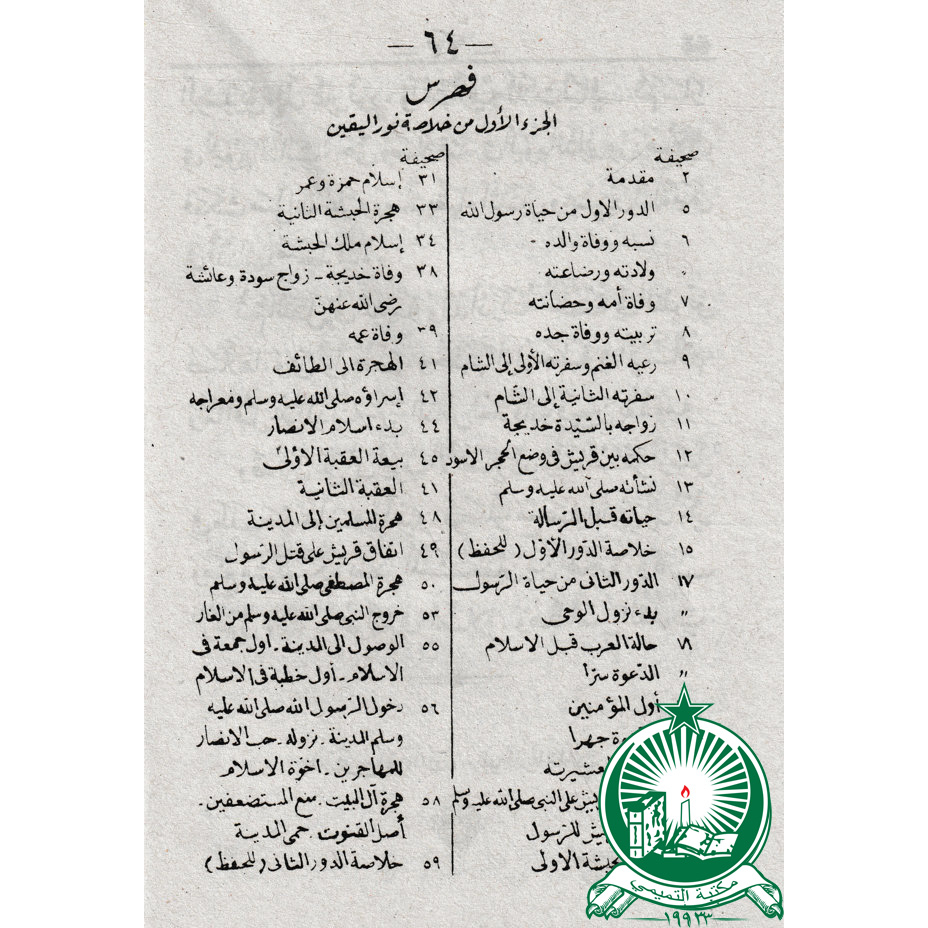 — ٦٤ —
فهرس
الجزء الأول من خلاصة نور اليقين
صحيفة
٢ مقدمة
٥ الدور الاول من حياة رسول الله
٦ نسبه ووفاة والده -
" ولادته ورضاعته
٧ وفاة أمه وحضانته
٨ تربيته ووفاة جده
٩ رعيه الغنم وسفرته الأولى إلى الشام
١٠ سفرته الثانية إلى الشام
١١ زواجه بالسيّدة خديجة
١٢ حكمه بين قريش فى وضع الحجر الاسود
١٣ نشأته صلى الله عليه وسلم
١٤ حياته قبل الرّسالة
١٥ خلاصة الدّور الأوّل (للحفظ)
١٧ الدّور الثانى من حياة الرّسول
" بدء نزول الوحى
١٨ حالة العرب قبل الاسلام
" الدّعوة سرّا
أول المؤمنين
جهرا
عشيرته
على النبى صلى الله عليه وسلم
للرسول
الاولى
صحيفة
٣١ إسلام حمزة وعمر
٣٣ هجرة الحبشة الثانية
٣٤ إسلام ملك الحبشة
٣٨ وفاة خديجة - زواج سودة وعائشة
رضى الله عنهنّ
٣٩ وفاة عمه
٤١ الهجرة الى الطائف
٤٢ إسراؤه صلى الله عليه وسلم ومعراجه
٤٤ بدء اسلام الانصار
٤٥ بيعة العقبة الأولىٰ
٤١ العقبة الثانية
٤٨ هجرة المسلمين إلى المدينة
٤٩ اتفاق قريش على قتل الرّسول
٥٠ هجرة المصطفى صلى الله عليه وسلم
٥٣ خروج النبى صلى الله عليه وسلم من الغار
٥٥ الوصول الى المدينة . اول جمعة فى
الاسلام - أول خطبة فى الاسلام
٥٦ دخول الرّسول الله صلى الله عليه
وسلم المدينة . نزوله . حب الانصار
للمهاجرين . اخوة الاسلام
٥٨ هجرة آل البيت . منع المستضعفين .
أصل القنوت . حمى المدينة
٥٩ خلاصة الدور الثانى (للحفظ)
مكتبة التميمي
١٩٩٣٣